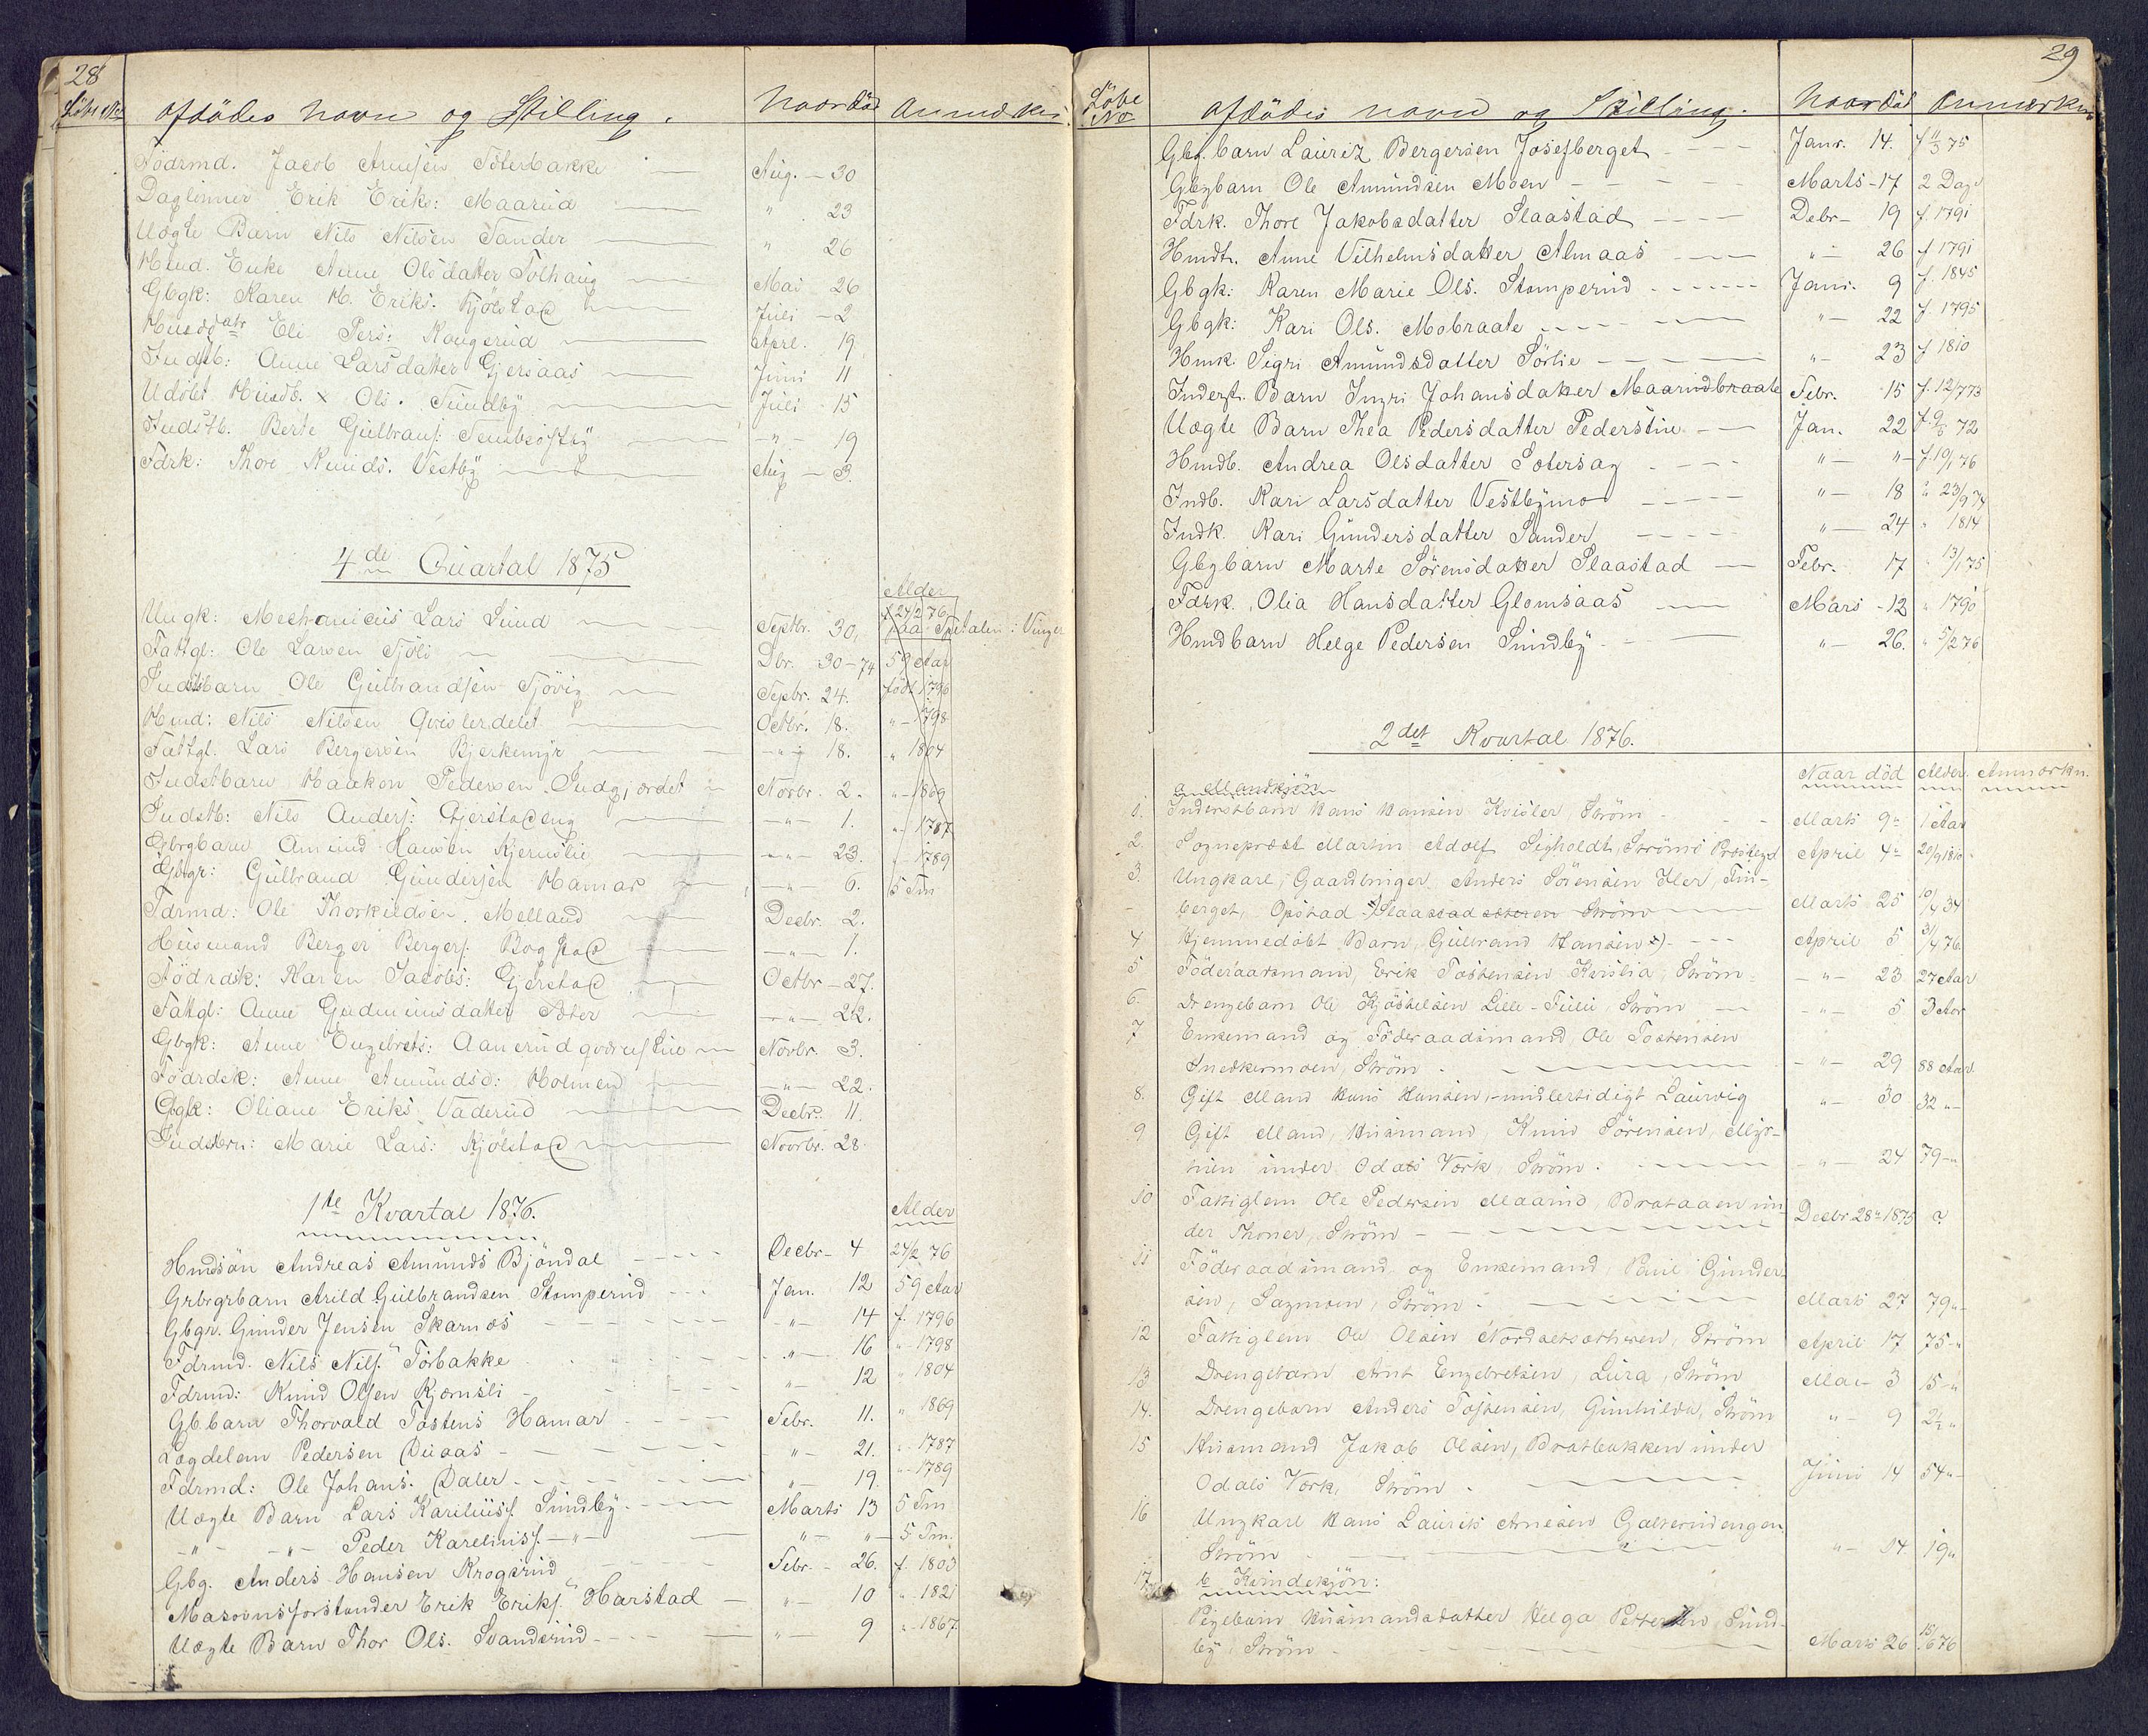 28
Løbe No afdødes navn og Stilling. Naar død Anmærkn
Födrmd. Jacob Arnesen Töterbakke Aug. 30
Daglönner Erik Eriks: Maarud " 23
Uægte Barn Nils Nilsen Sander " 26
Hmd. Enke Anne Olsdatter Tolhaug Mai 26
Gbgk: Karen M. Eriks. Kjölstad Juli - 2
Eli Pers: Rougerud Aprl. 19
Indstb: Anne Larsdatter Gjersaas Juni 11
Udöbt Husdb. x Ols. Sundby Juli - 15
Indstb. Berte Gulbrands: -"- 19
Fdrk: Thore Knuds. Vestby Aug - 3.
4de Quartal 1875
Alder
Ungk: Mechanicus Lars Lund Septbr. 30, paa Spitalen i Vinger
Fattgl: Ole Larsen Sjöli Dbr. 30-74 59 Aar
Indstbarn Ole Gulbrandsen Sjövig Sepbr. 24. født 1796
Hmd: Nils Nilsen Qvislerdelet Octbr. 18. "-1798
Fattgl. Lars Bergersen Bjerkemyr -"- 18. " 1804
Indstbarn Haakon Pedersen Indgjærdet Novbr. 2. "-1869
Indstb: Nils Anders: Gjerstadeng -"- 1. "-1787
Gbrgbarn Amund Hansen Kjernslie -"- 23. "-1789
Gbgr: Gulbrand Gundersen Hamar -"- 6. 5 Tm
Fdrmd: Ole Thorkildsen. Melland Decbr. 2.
Husmand Berger Bergers. Bogstad -"- 1.
Födrdsk: Karen Jacobs: Gjerstad Octbr - 27.
Fattgl: Anne Gudmunsdatter Sæter -"- 22.
Gbgk: Anne Engebrets: Novbr. 3.
Födrdsk: Anne Amundsd: Holmen -"- 22.
Gbgk: Oliane Eriks. Vaderud Decbr. 11.
Indstbrn: Marie Lars: Kjölstad Novbr. 28
1te Kvartal 1876.
Alder
Hmdsön Andreas Amunds Bjöndal Decbr - 4 24/2 76
Grbrgrbarn Arild Gulbrandsen Stomperud Jan. 12 59 Aar
Gbgr. Gunder Jensen Skarnæs -"- 14 f. 1796
Fdrmd. Nils Nils. Törbakke -"- 16 "-1798
Fdrmd: Knud Olsen Kjærnsli "- 12 " 1804
Gb. barn Thorvald Tostens Hamar Febr. 11. " 1869
Lægdelem Pedersen Duaas "- 21. "-1787
Fdrmd: Ole Johans. Daler "- 19. "-1789
Uægte Barn Lars Kariliuss. Sundby Marts 13 5 Tm
-"- -"- Peder Kareliuss. -"- "- "- 5 Tm.
Gbg. Anders Hansen Krogsrud Febr. - 26. f. 1803
Masovnsforstander Erik Eriks. Harstad "- 10 "-1821
Uægte Barn Thor Ols. Svandsrud "- 9 "-1867.
29
Løbe No afdødes navn og Stilling. Naar død Anmærkn
Gbg. barn Lauritz Bergersen Josefberget Janr. 14. f 11/3 75
Gbgbarn Ole Amundsen Moen Marts - 17 2 Dage
Fdrk. Thore Jakobsdatter Slaastad Debr - 19 f. 1791
Hmdt. Anne Vilhelmsdatter Almaas "- 26 f 1791
Gbgk: Karen Marie Ols. Stomperud Janr. 9 f. 1845
Gbgk: Kari Ols. Mobraate "- 22 f. 1795
Hmk. Sigri Amundsdatter Sörlie "- 23 f 1810
Inderst. Barn Ingri Johansdatter Maarudbraate Febr. 15 f. 12/7 73
Uægte Barn Thea Pedersdatter Pederstue Jan. 22 f. 9/8 72
Hmdb. Andrea Olsdatter Sotersag "- "- f. 19/1 76
Indb. Kari Larsdatter Vestbymo "- 18 " 23/9 74
Indk. Kari Gundersdatter Sander "- 24 " 1814
Gbgbarn Marte Sörensdatter Slaastad Febr. 17 " 13/1 75
Fdrk. Olia Hansdatter Glomsaas Mars - 12 " 1790
Hmdbarn Helge Pedersen Sundby "- 26. " 5/2 76
2det Kvartal 1876.
Naar död Alder. Anmærkn.
a Mandkjön
1. Inderstbarn Hans Hansen Kvisler, Ström Marts 9 1 Aar
2. Sogneprest Martin Adolf Sigholdt, Ströms Prestegd April 4 20/9 1810
3. Ungkarl, Gaardbruger Anders Sörensen Tler, Fin-
berget, Opstad Slaastad sæteren Ström Marts 25 10/4 34
4 Hjemmedöbt Barn, Gulbrand Hansen x) April 5 31/4 76
5 Föderaadsmand, Erik Tostensen Kvislia, Ström -"- 23 27 Aar
6. Drengebarn Ole Kjöstelsen Lille-Fulu, Ström -"- 5 3 Aar
7 Enkemand og Föderaadsmand, Ole Tostensen
Snedkermoen, Ström -"- 29 88 Aar
8. Gift Mand Hans Hansen, midlertidigt Laurvig "- 30 32 "-
9 Gift Mand, Husmand, Knud Sörensen, Myr-
tuen under Odals Værk, Ström. -"- 24 79-"
10 Fattiglem Ole Pedersen Maarud, Brataaen un-
der Thoner, Ström Decbr 28 1875 ?
11 Föderaadsmand og Enkemand, Paul Gunder-
sen, Sagmoen, Ström Marts 27 79"-
12 Fattiglem Ole Olsen Nordsetsæthren, Ström April 17 75-"
13 Drengebarn Arnt Engebretsen, Lura, Ström Mai - 3 15-"
14. Drengebarn Anders Tostensen, Gunhildu, Ström "- 9 2½ "
15 Husmand Jakob Olsen, Bratbakken under
Odals Værk, Ström Juni 14 54"-
16 Ungkarl Hans Laurits Arnesen Galterudengen
Ström "- 14 19"
17. b Kvindekjön:
Pigebarn Husmandsdatter Helga Petersen Sund-
by, Ström Marts 26 15/6 76